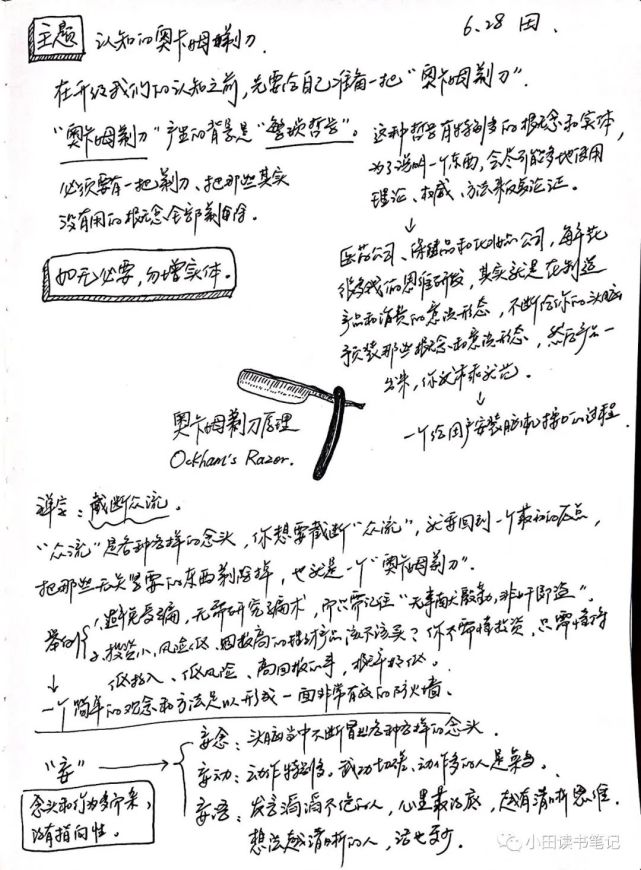 主题 认知的奥卡姆剃刀. 6.28 田.
在升级我们的认知之前,先要给自己准备一把“奥卡姆剃刀”.
“奥卡姆剃刀”产生的背景是“繁琐哲学”。
必须要有一把剃刀、把那些其实
没有用的概念全部剃除.
如无必要,勿增实体。
这种哲学有特别多的概念和实体,
为了说明一个东西,会尽可能多地使用
理论、权威、方法来反复论证.
↓
医药公司、保健品和化妆品公司,每年花
很多钱的思维研发,其实就是在制造
产品和消费的意识形态,不断给你的头脑
预装那些概念和意识形态,然后产品一
出来,你就乖乖
↓
一个给用户安装脑机接口的过程.
奥卡姆剃刀原理
Ockham's Razor.
禅宗:截断众流.
“众流”是各种各样的念头,你想要截断“众流”,就要回到一个最初的原点,
把那些无关紧要的东西剃除掉,也就是一个“奥卡姆剃刀”.
举例 1.避免受骗,无需研究骗术,你只需记住“无事献殷勤,非奸即盗”。
2.投资小,风险低、回报高的理财产品该不该买?你不需懂投资,只需懂得
低投入、低风险、高回报的事,概率极低。
↓
一个简单的观念和方法足以形成一面非常有效的防火墙.
“妄” →
念头和行为多而杂,
没有指向性。
妄念:头脑当中不断冒出各种各样的念头.
妄动:动作特别多。武功切磋、动作多的人是菜鸟.
妄语:发言滔滔不绝的人,心里最没底,越有清晰思维.
想法越清晰的人,话也更少.
小田读书笔记